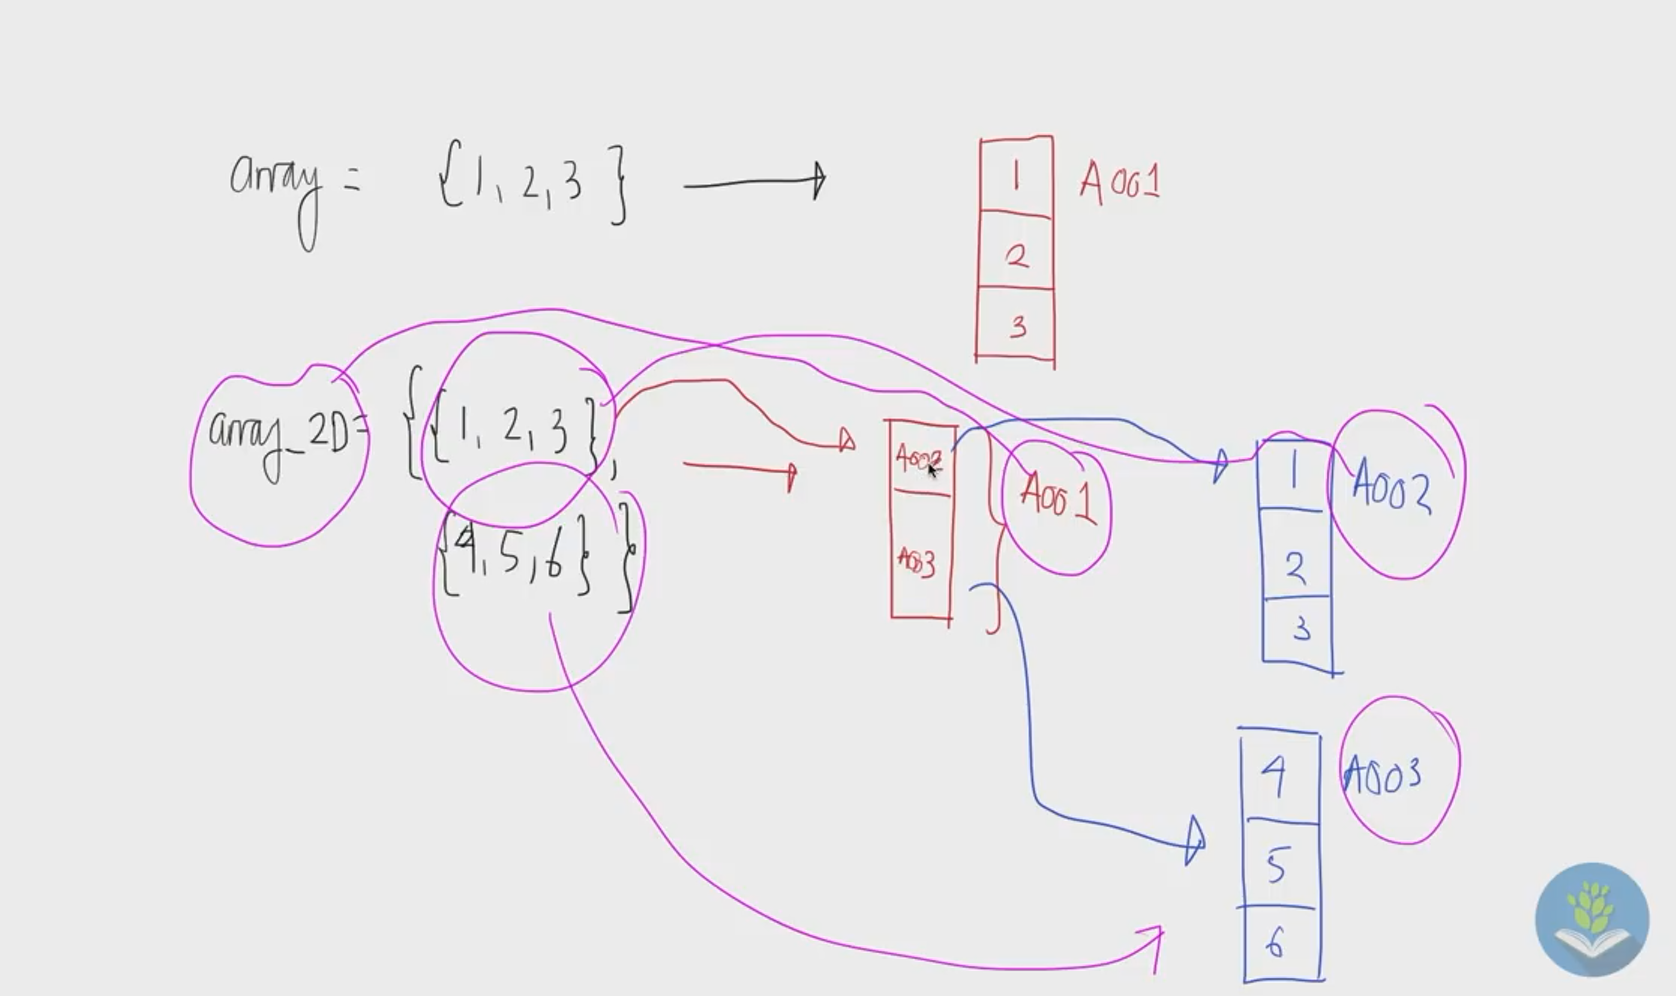 array = {1, 2, 3}
1
2
3
A001
array_2D = {{1, 2, 3},
{4, 5, 6}}
A002
A003
A001
1
2
3
A002
4
5
6
A003